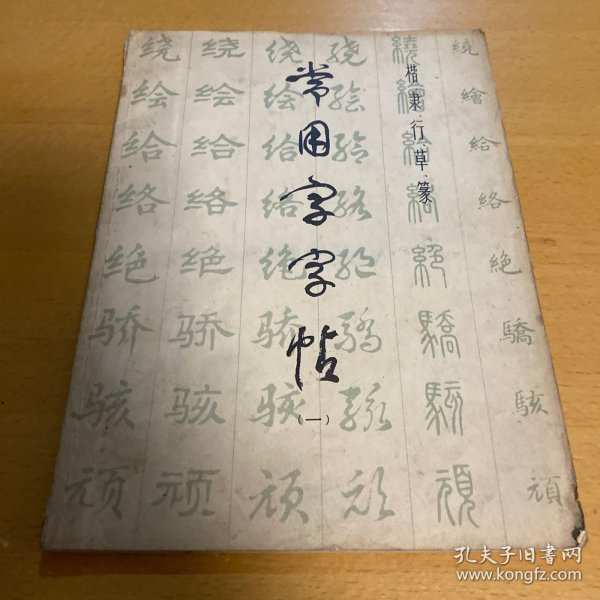 常用字字帖
(一)
楷·隶·行·草·篆
绕 绕 绕 绕 繞 繞
绘 绘 绘 绘 繪 繪
给 给 给 给 給 給
络 络 络 络 絡 絡
绝 绝 绝 绝 絕 絕
骄 骄 骄 骄 驕 驕
骇 骇 骇 骇 駭 駭
顽 顽 顽 顽 頑 頑
孔夫子旧书网
www.kongfz.com